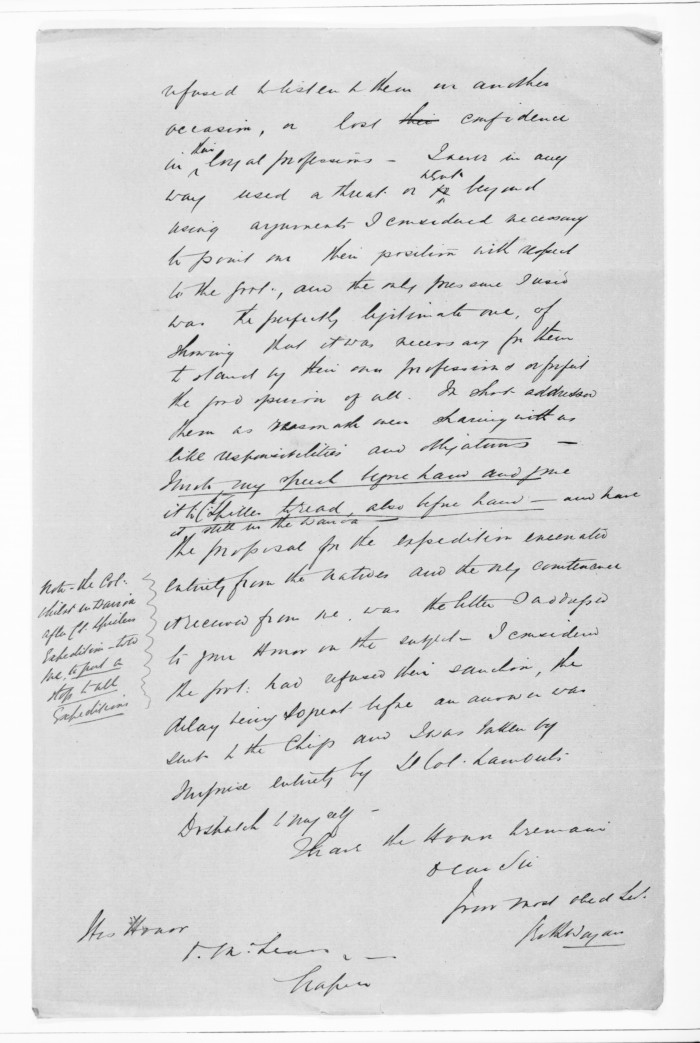 refused to listen to them on another
occasion, or lost their confidence
in their loyal professions – I never in any
way used a threat or went beyond
using arguments I considered necessary
to point out their position with respect
to the Govt., and the only pressure I used
was the perfectly legitimate one, of
showing that it was necessary for them
to stand by their own professions or forfeit
the good opinion of all. In short addressed
them as reasonable men sharing with us
like responsibilities and obligations –
I wrote my speech before hand and gave
it to C. Spiller to read, also before hand – and have
it still in the
The proposal for the expedition emanated
entirely from the Natives and the only countenance
it received from me was the letter I addressed
to your Honor on the subject – I considered
the Govt: had refused their sanction, the
delay being so great before an answer was
sent to the Chiefs and I was taken by
surprise entirely by Lt Col. Lambert's
Despatch to myself –
I have the Honor to remain
Dear Sir
Your most obed Sert.
His Honor
D. McLean
Napier
Note – the Col.
whilst in Wairoa
after Col. Spillers
Expedition – told
me to put a
stop to all
Expeditions